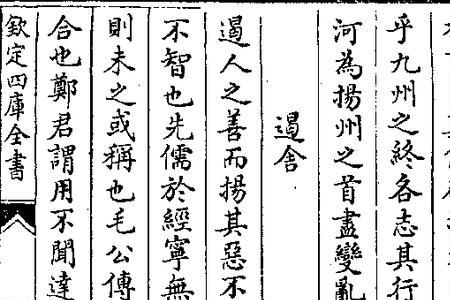 乎九州之終各志其行
河為揚州之首盡變亂
遏舍
遏人之善而揚其惡不
不智也先儒於經寧無
則未之或稱也毛公傳
合也鄭君謂用不聞達
欽定四庫全書